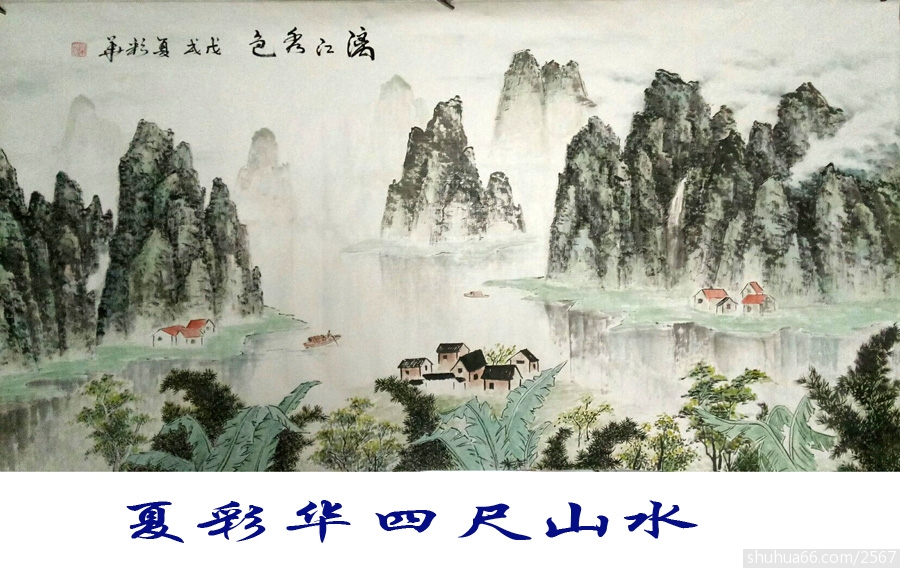 漓江秀色 戊戌 夏彩華
夏彩华四尺山水
shuhua66.com/2567